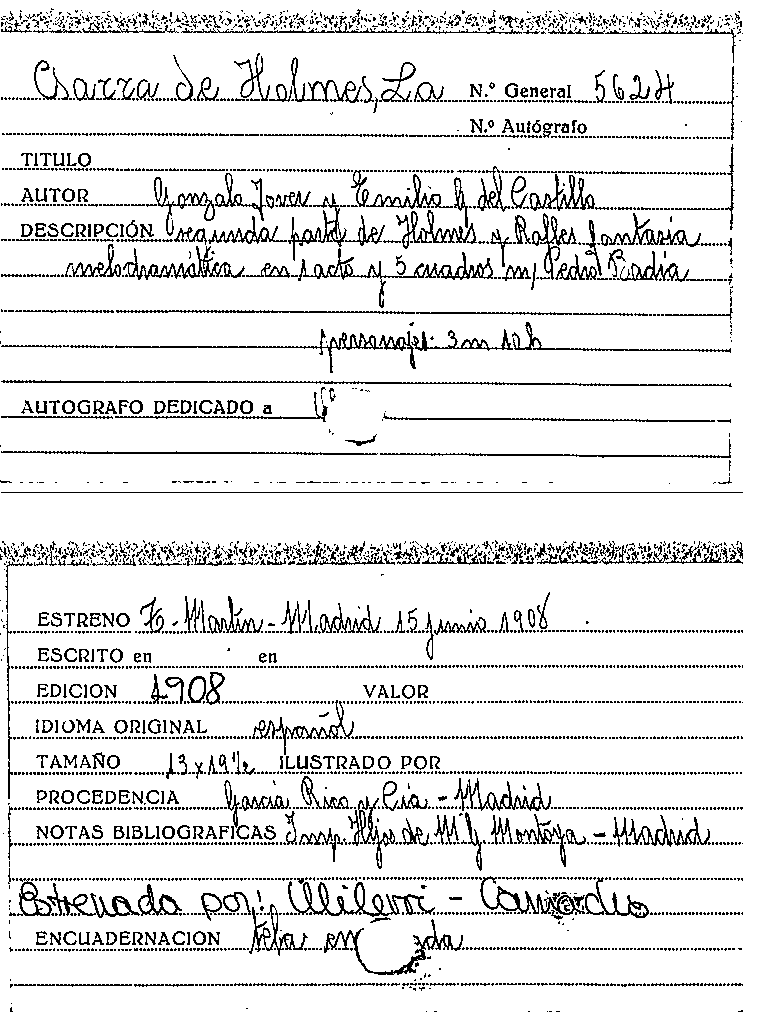 Garra de Holmes, La Nº General 5624
Nº Autógrafo
TITULO
AUTOR Gonzalo Jover y Emilio G del Castillo
DESCRIPCIÓN segunda parte de Holmes y Rafles fantasia
melodramática en 1 acto y 5 cuadros m, Pedro Badía
personajes: 3m 10h
AUTOGRAFO DEDICADO a
ESTRENO To. Martín - Madrid 15 junio 1908
ESCRITO en en
EDICION 1908 VALOR
IDIOMA ORIGINAL español
TAMAÑO 13 x 19 1/2 ILUSTRADO POR
PROCEDENCIA García Rico y Cía - Madrid
NOTAS BIBLIOGRAFICAS Imp. Hijos de M G Montoya - Madrid
Estrenada por:
ENCUADERNACION tela en